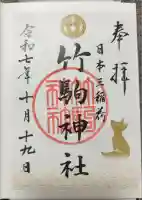 奉拝
日本三稲荷
竹駒神社
令和七年十月十九日